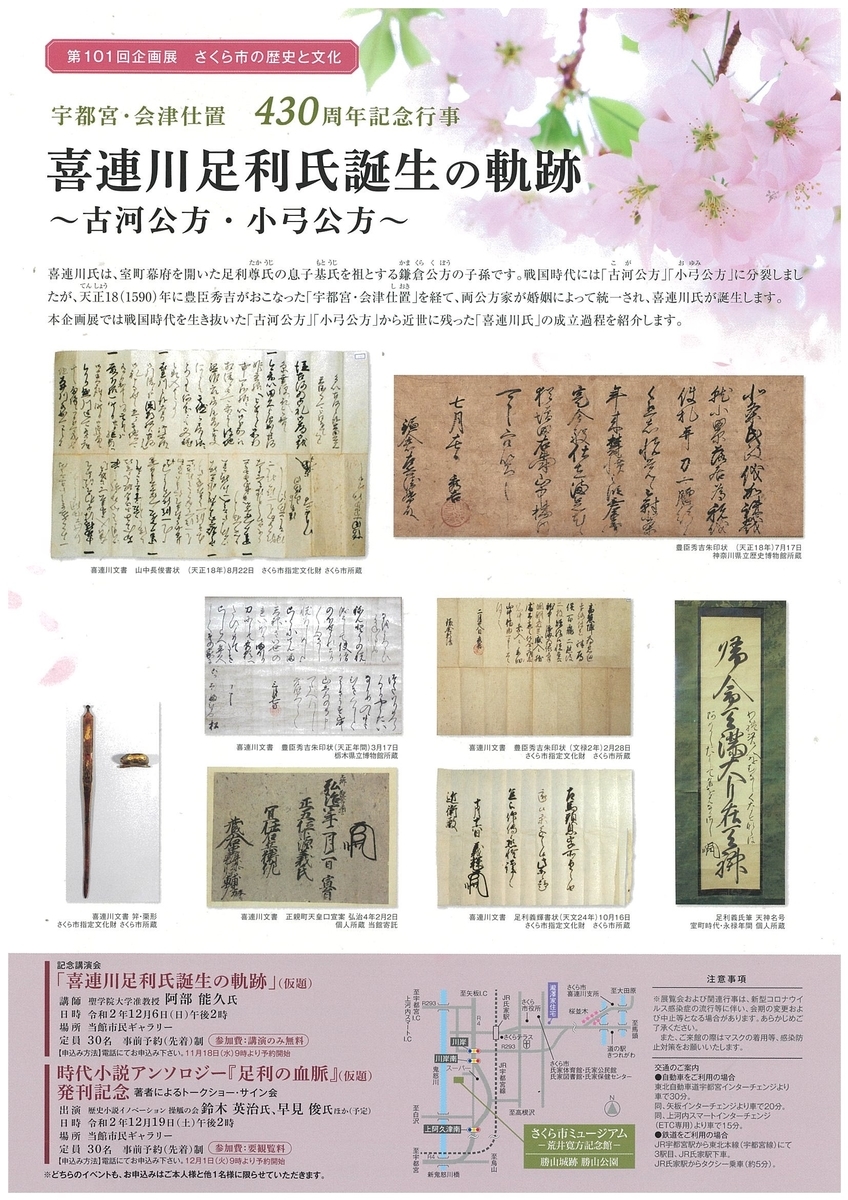 第101回企画展　さくら市の歴史と文化
宇都宮・会津仕置　430周年記念行事
喜連川足利氏誕生の軌跡
～古河公方・小弓公方～
喜連川氏は、室町幕府を開いた足利尊氏の息子基氏を祖とする鎌倉公方の子孫です。戦国時代には「古河公方」「小弓公方」に分裂しまし
たが、天正18(1590)年に豊臣秀吉がおこなった「宇都宮・会津仕置」を経て、両公方家が婚姻によって統一され、喜連川氏が誕生します。
本企画展では戦国時代を生き抜いた「古河公方」「小弓公方」から近世に残った「喜連川氏」の成立過程を紹介します。
喜連川文書　山中長俊書状　(天正18年)8月22日　さくら市指定文化財 さくら市所蔵
豊臣秀吉朱印状　(天正18年)7月17日
神奈川県立歴史博物館所蔵
喜連川文書　豊臣秀吉朱印状 (天正年間)3月17日
栃木県立博物館所蔵
喜連川文書　豊臣秀吉朱印状　(文禄2年)2月28日
さくら市指定文化財　さくら市所蔵
喜連川文書 笄・栗形
さくら市指定文化財 さくら市所蔵
喜連川文書　正親町天皇口宣案 弘治4年2月2日
個人所蔵 当館寄託
喜連川文書　足利義輝書状(天文24年)10月16日
さくら市指定文化財　さくら市所蔵
足利義氏筆 天神名号
室町時代・永禄年間 個人所蔵
記念講演会
「喜連川足利氏誕生の軌跡」(仮題)
講師　聖学院大学准教授 阿部 能久氏
日時　令和2年12月6日(日)午後2時
場所　当館市民ギャラリー
定員　30名　事前予約(先着)制　参加費:講演のみ無料
【申込み方法】電話にてお申込み下さい。11月18日(水)9時より予約開始
時代小説アンソロジー『足利の血脈』(仮題)
発刊記念 著者によるトークショー・サイン会
出演　歴史小説イノベーション 操觚の会 鈴木 英治氏、早見 俊氏ほか(予定)
日時　令和2年12月19日(土)午後2時
場所　当館市民ギャラリー
定員　30名　事前予約(先着)制　参加費:要観覧料
【申込み方法】電話にてお申込み下さい。12月1日(火)9時より予約開始
※どちらのイベントも、お申込みはご本人様と他1名様に限らせていただきます。
至宇都宮I.C
上河内スマートI.C
至矢板I.C
R293
R4
JR氏家駅
さくら市役所
瀧澤家住宅
さくら市
喜連川支所
至大田原
桜並木
至馬頭
さくらテラス
R293
道の駅
きつれがわ
川岸
川岸南
スーパー
鬼怒川
JR宇都宮線
さくら市
氏家体育館・氏家公民館
氏家図書館・氏家保健センター
至高根沢
至白沢
上阿久津南
N
さくら市ミュージアム
－荒井寛方記念館－
勝山城跡 勝山公園
至宇都宮
R4
新鬼怒川橋
至烏山
注意事項
※展覧会および関連行事は、新型コロナウイ
ルス感染症の流行等に伴い、会期の変更およ
び中止等となる場合があります。あらかじめご
了承ください。
また、ご来館の際はマスクの着用等、感染防
止対策をお願いいたします。
交通のご案内
●自動車をご利用の場合
東北自動車道宇都宮インターチェンジより
車で30分。
同、矢板インターチェンジより車で20分。
同、上河内スマートインターチェンジ
(ETC専用)より車で15分。
●鉄道をご利用の場合
JR宇都宮駅から東北本線(宇都宮線)にて
3駅目、JR氏家駅下車。
JR氏家駅からタクシー乗車(約5分)。